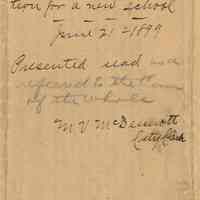 tion for a new school
June 21st 1899
Presented read and
refered to the Com
of the Whole
M V McDermott
City Clerk